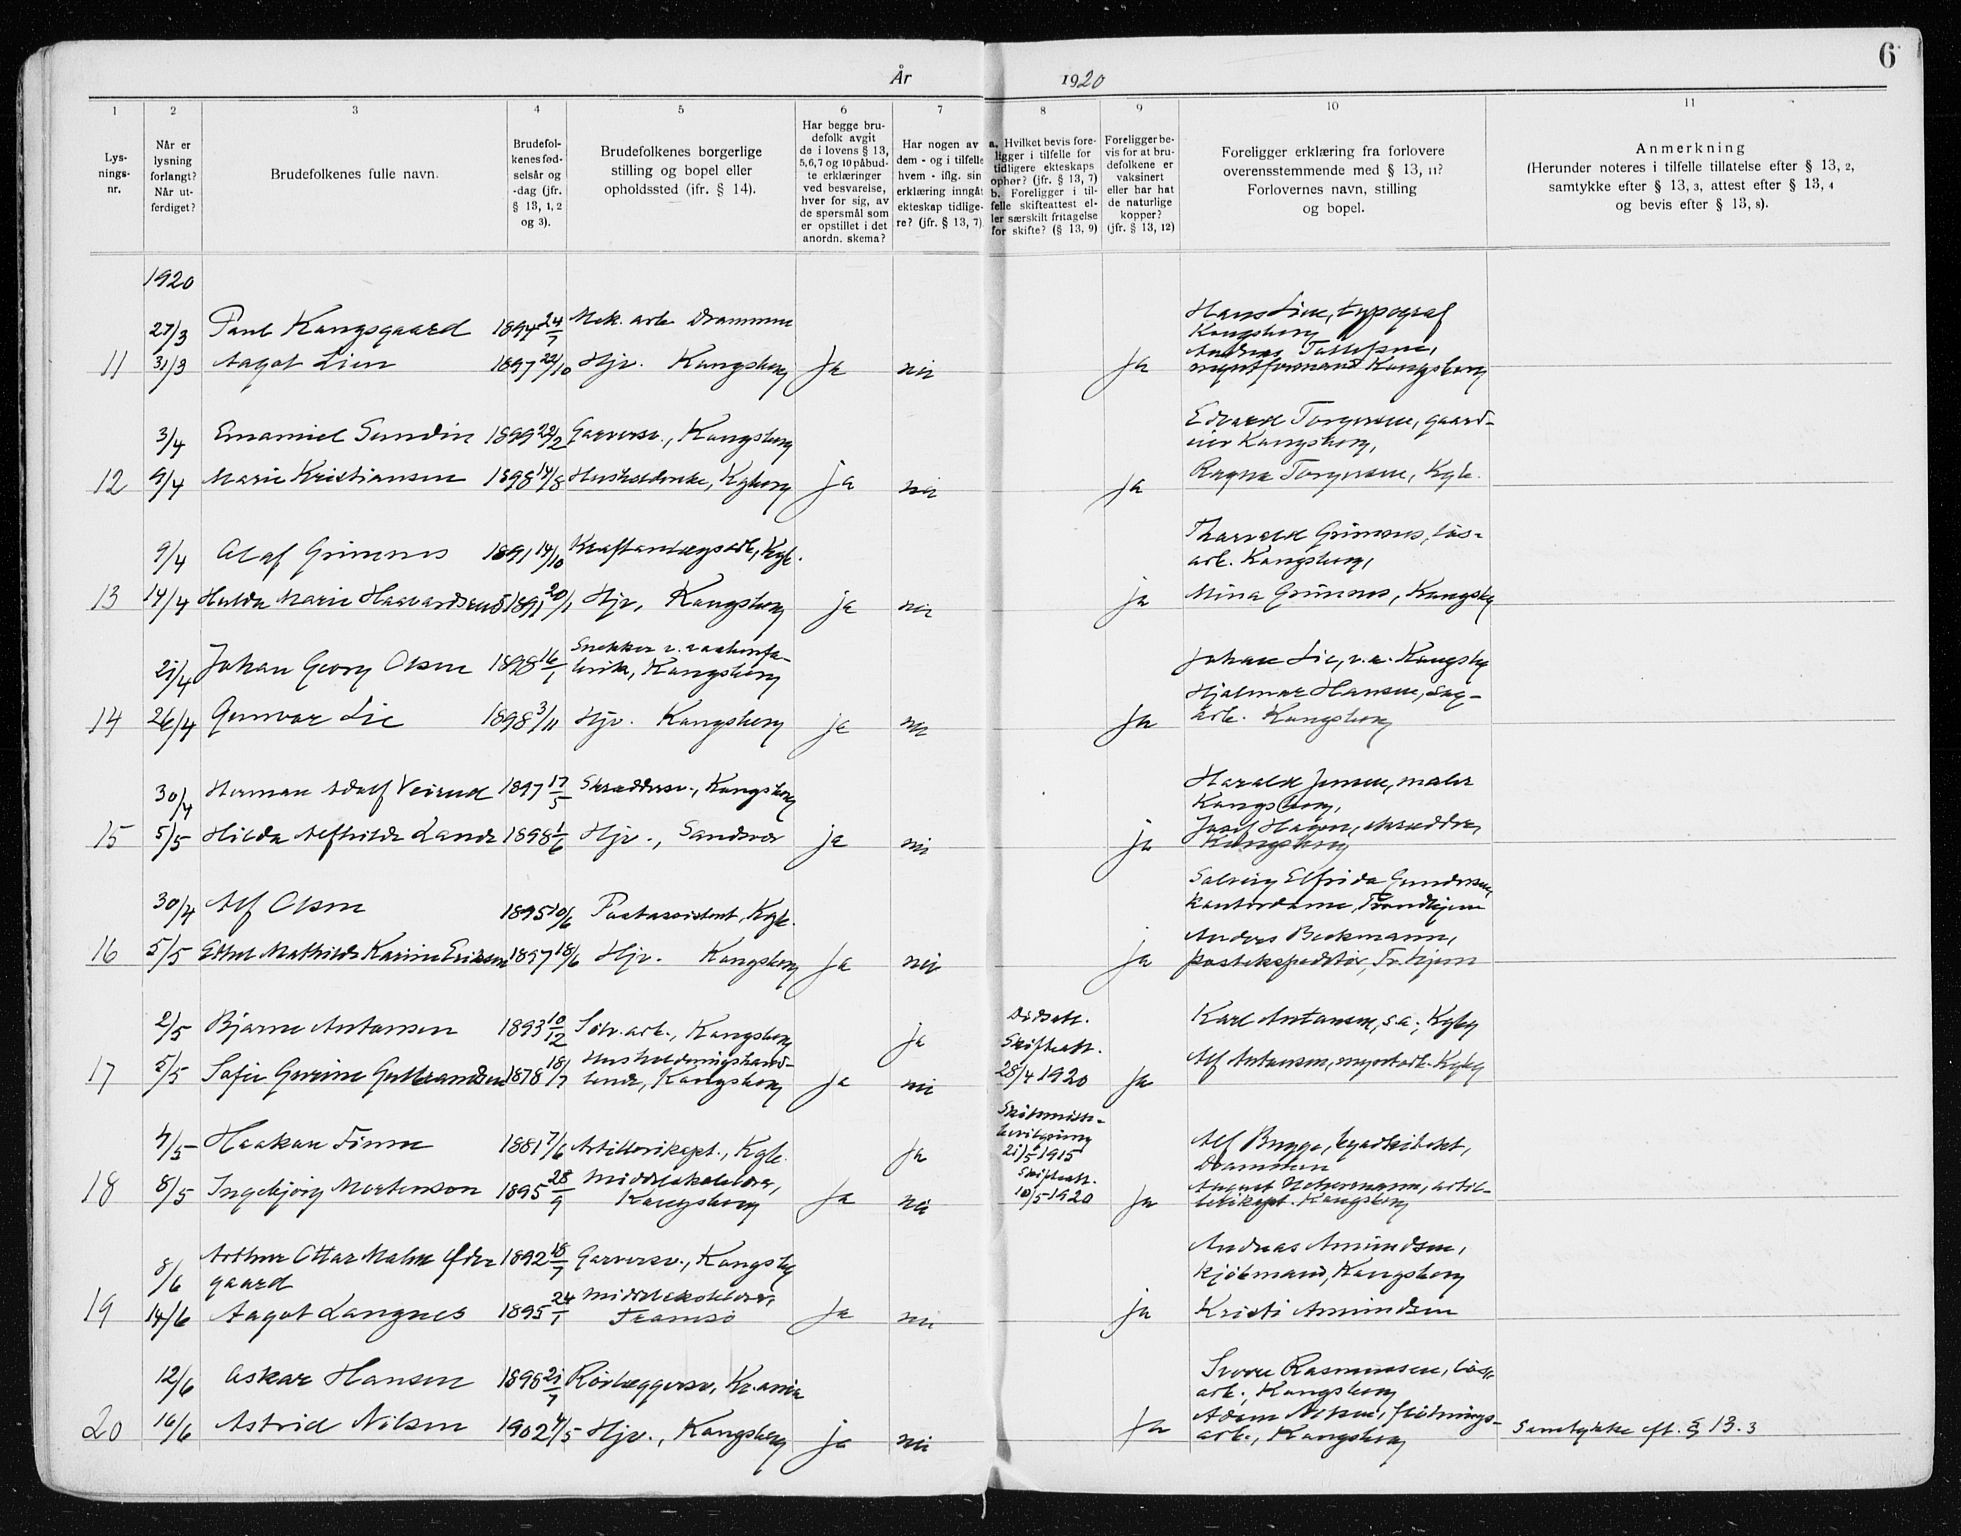 År 1920
6
1
2
3
4
5
6
7
8
9
10
11
Lys-
nings-
nr.
Når er
lysning
forlangt?
Når ut-
ferdiget?
Brudefolkenes fulle navn.
Brudefol-
kenes fød-
selsår og
-dag (jfr.
§ 13, 1, 2
og 3).
Brudefolkenes borgerlige
stilling og bopel eller
opholdssted (ifr. § 14).
Har begge bru-
defolk avgit
de i lovens § 13,
5,6,7 og 10 påbud-
te erklæringer
ved besvarelse,
hver for sig, av
de spørsmål som
er opstillet i det
anordn. skema?
Har nogen av
dem - og i tilfelle
hvem - iflg. sin
erklæring inngåt
ekteskap tidlige-
re? (jfr. § 13, 7).
a. Hvilket bevis fore-
ligger i tilfelle for
tidligere ekteskaps
ophør? (jfr. § 13, 7)
b. Foreligger i til-
felle skifteattest el-
ler særskilt fritagelse
for skifte? (§ 13, 9)
Foreligger be-
vis for at bru-
defolkene er
vaksinert
eller har hat
de naturlige
kopper?
(jfr. § 13, 12)
Foreligger erklæring fra forlovere
overensstemmende med § 13, 11?
Forlovernes navn, stilling
og bopel.
Anmerkning
(Herunder noteres i tilfelle tillatelse efter § 13, 2,
samtykke efter § 13, 3, attest efter § 13, 4
og bevis efter § 13, 8).
1920
27/3 Paul Kongsgaard 1894 24/7 Mek. arb. Drammen
Hans Lien, typograf
Kongsberg
11 31/3 Aagot Lien 1897 22/10 Hjv. Kongsberg ja nei ja
Andreas Tollefsen,
myntformand Kongsberg
3/4 Emanuel Sundin 1899 22/2 Garversv., Kongsberg
Edvard Torgersen, gaard-
eier Kongsberg,
12 9/4 Marie Kristiansen 1898 14/8 Husholderske, Kgberg ja nei ja
Ragna Torgersen, Kgb.
9/4 Olaf Grimnes 1891 14/10 Kraftanlægsarb., Kgb.
Thorvald Grimnes, løs-
arb. Kongsberg,
13 14/4 Hulda Marie Haavardsrud 1891 20/1 Hjv, Kongsberg ja nei ja
Mina Grimnes, Kongsbg
21/4 Johan Georg Olsen 1898 16/1 Snekker v. vaabenfa-
brikk, Kongsberg
Johan Lie, v.a. Kongsbg
14 26/4 Gunvor Lie 1898 3/11 Hjv. Kongsberg ja nei ja
Hjalmar Hansen, sag-
arb. Kongsberg
30/4 Herman Adolf Veirud 1897 17/5 Skræddersv., Kongsberg
Harald Jensen, maler
Kongsberg,
15 5/5 Hilda Alfhilde Lande 1898 1/6 Hjv., Sandsvær ja nei ja
Josef Hagen, skrædder,
Kongsberg
30/4 Alf Olsen 1895 10/6 Postassistent, Kgb.
Solveig Elfrida Gundersen,
kontordame, Trondhjem
16 5/5 Ethel Mathilde Karine Eriksen 1897 18/6 Hjv. Kongsberg ja nei ja
Anders Beckmann,
postekspeditør, Tr.hjem
2/5 Bjarne Antonsen 1893 10/12 Sølv.arb., Kongsberg ja Dødsatt.
Karl Antonsen, s.a., Kgbg
17 5/5 Sofie Gurine Gulbrandsen 1878 18/7 Husholdningshand-
lende, Kongsberg ja nei Skifteatt.
28/4 1920 ja
Alf Antonsen, myntarb. Kgbg
4/5 Haakon Finne 1881 7/6 Artillerikapt., Kgb. ja Skilsmisse-
bevilgning
21/5 1915
Alf Bugge, byarkitekt,
Drammen
18 8/5 Ingebjørg Mortenson 1895 28/9 Middelskolelærer,
Kongsberg ja nei Skifteatt.
10/5 1920 ja
August artil-
lerikapt. Kongsberg
8/6 Arthur Ottar Malm Øde-
gaard 1892 18/7 Garversv., Kongsbg
Andreas Amundsen,
kjøbmand, Kongsberg
19 14/6 Aagot Langnes 1895 24/1 Middelskolelærer,
Tromsø ja nei ja
Kristi Amundsen
12/6 Oskar Hansen 1898 21/7 Rørlæggersv, Kr.ania
Sverre Rasmussen, løs-
arb., Kongsberg
20 16/6 Astrid Nilsen 1902 4/5 Hjv., Kongsberg ja nei ja
Adam Nilsen, fløtnings-
arb., Kongsberg
Samtykke eft. § 13.3